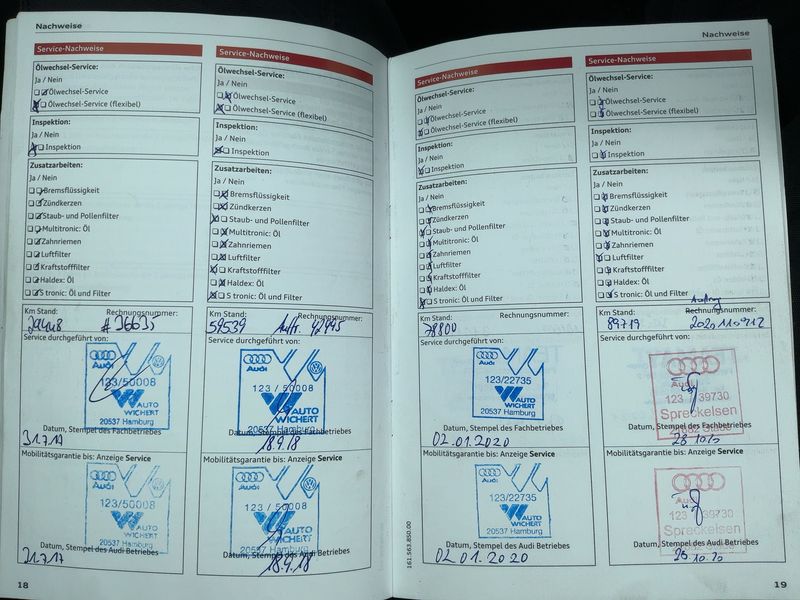 Nachweise
Service-Nachweise
Ölwechsel-Service:
Ja / Nein
Ölwechsel-Service
Ölwechsel-Service (flexibel)
Inspektion:
Ja / Nein
Inspektion
Zusatzarbeiten:
Ja / Nein
Bremsflüssigkeit
Zündkerzen
Staub- und Pollenfilter
Multitronic: Öl
Zahnriemen
Luftfilter
Kraftstofffilter
Haldex: Öl
S tronic: Öl und Filter
Km Stand: Rechnungsnummer:
Service durchgeführt von:
Audi
123/50008
AUTO
WICHERT
20537 Hamburg
Datum, Stempel des Fachbetriebes
31.7.17
Mobilitätsgarantie bis: Anzeige Service
Audi
123/50008
AUTO
WICHERT
20537 Hamburg
Datum, Stempel des Audi Betriebes
31.7.17
18
Service-Nachweise
Ölwechsel-Service:
Ja / Nein
Ölwechsel-Service
Ölwechsel-Service (flexibel)
Inspektion:
Ja / Nein
Inspektion
Zusatzarbeiten:
Ja / Nein
Bremsflüssigkeit
Zündkerzen
Staub- und Pollenfilter
Multitronic: Öl
Zahnriemen
Luftfilter
Kraftstofffilter
Haldex: Öl
S tronic: Öl und Filter
Km Stand: Rechnungsnummer:
59539 Auftr. 42995
Service durchgeführt von:
Audi
123 / 50008
AUTO
WICHERT
20537 Hamburg
Datum, Stempel des Fachbetriebes
18.9.18
Mobilitätsgarantie bis: Anzeige Service
Audi
123 / 50008
AUTO
WICHERT
20537 Hamburg
Datum, Stempel des Audi Betriebes
18.9.18
Nachweise
Service-Nachweise
Ölwechsel-Service:
Ja / Nein
Ölwechsel-Service
Ölwechsel-Service (flexibel)
Inspektion:
Ja / Nein
Inspektion
Zusatzarbeiten:
Ja / Nein
Bremsflüssigkeit
Zündkerzen
Staub- und Pollenfilter
Multitronic: Öl
Zahnriemen
Luftfilter
Kraftstofffilter
Haldex: Öl
S tronic: Öl und Filter
Km Stand: Rechnungsnummer:
78800
Service durchgeführt von:
Audi
123/22735
AUTO
WICHERT
20537 Hamburg
Datum, Stempel des Fachbetriebes
02.01.2020
Mobilitätsgarantie bis: Anzeige Service
Audi
123/22735
AUTO
WICHERT
20537 Hamburg
Datum, Stempel des Audi Betriebes
02.01.2020
161.563.850.00
Service-Nachweise
Ölwechsel-Service:
Ja / Nein
Ölwechsel-Service
Ölwechsel-Service (flexibel)
Inspektion:
Ja / Nein
Inspektion
Zusatzarbeiten:
Ja / Nein
Bremsflüssigkeit
Zündkerzen
Staub- und Pollenfilter
Multitronic: Öl
Zahnriemen
Luftfilter
Kraftstofffilter
Haldex: Öl
S tronic: Öl und Filter
Km Stand: Rechnungsnummer:
89719
Service durchgeführt von:
Audi
123 39730
Spreckelsen
Datum, Stempel des Fachbetriebes
Mobilitätsgarantie bis: Anzeige Service
Audi
123 39730
Spreckelsen
Datum, Stempel des Audi Betriebes
19